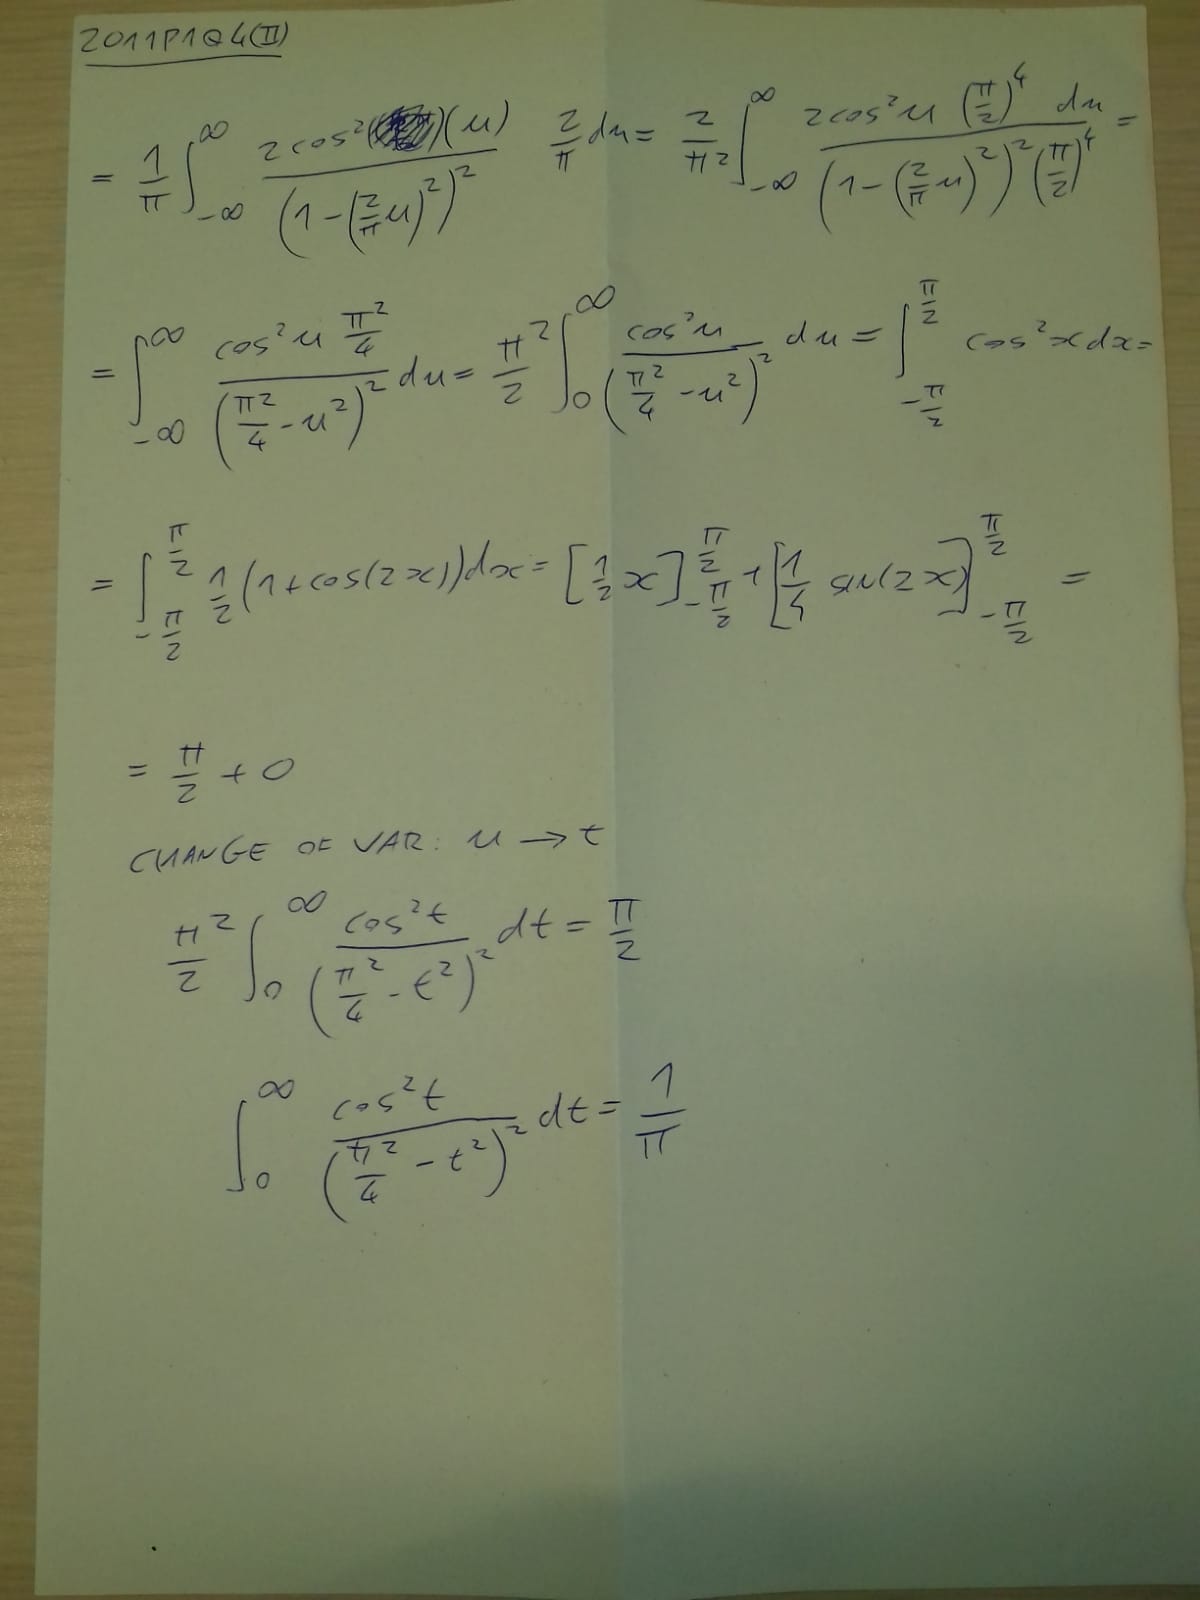 2011P1Q4(II)
= 1/π ∫_{-∞}^{∞} 2cos²(u) / (1-(2/π u)²)² 2/π du = 2/π² ∫_{-∞}^{∞} 2cos²u (π/2)⁴ du / (1-(2/π u)²)² (π/2)⁴ =
= ∫_{-∞}^{∞} cos²u π²/4 / (π²/4 - u²)² du = π²/2 ∫_0^∞ cos²u / (π²/4 - u²)² du = ∫_{-π/2}^{π/2} cos²x dx =
= ∫_{-π/2}^{π/2} 1/2 (1+cos(2x))dx = [1/2 x]_{-π/2}^{π/2} + [1/4 sin(2x)]_{-π/2}^{π/2} =
= π/2 + 0
CHANGE OF VAR: u → t
π²/2 ∫_0^∞ cos²t / (π²/4 - t²)² dt = π/2
∫_0^∞ cos²t / (π²/4 - t²)² dt = 1/π